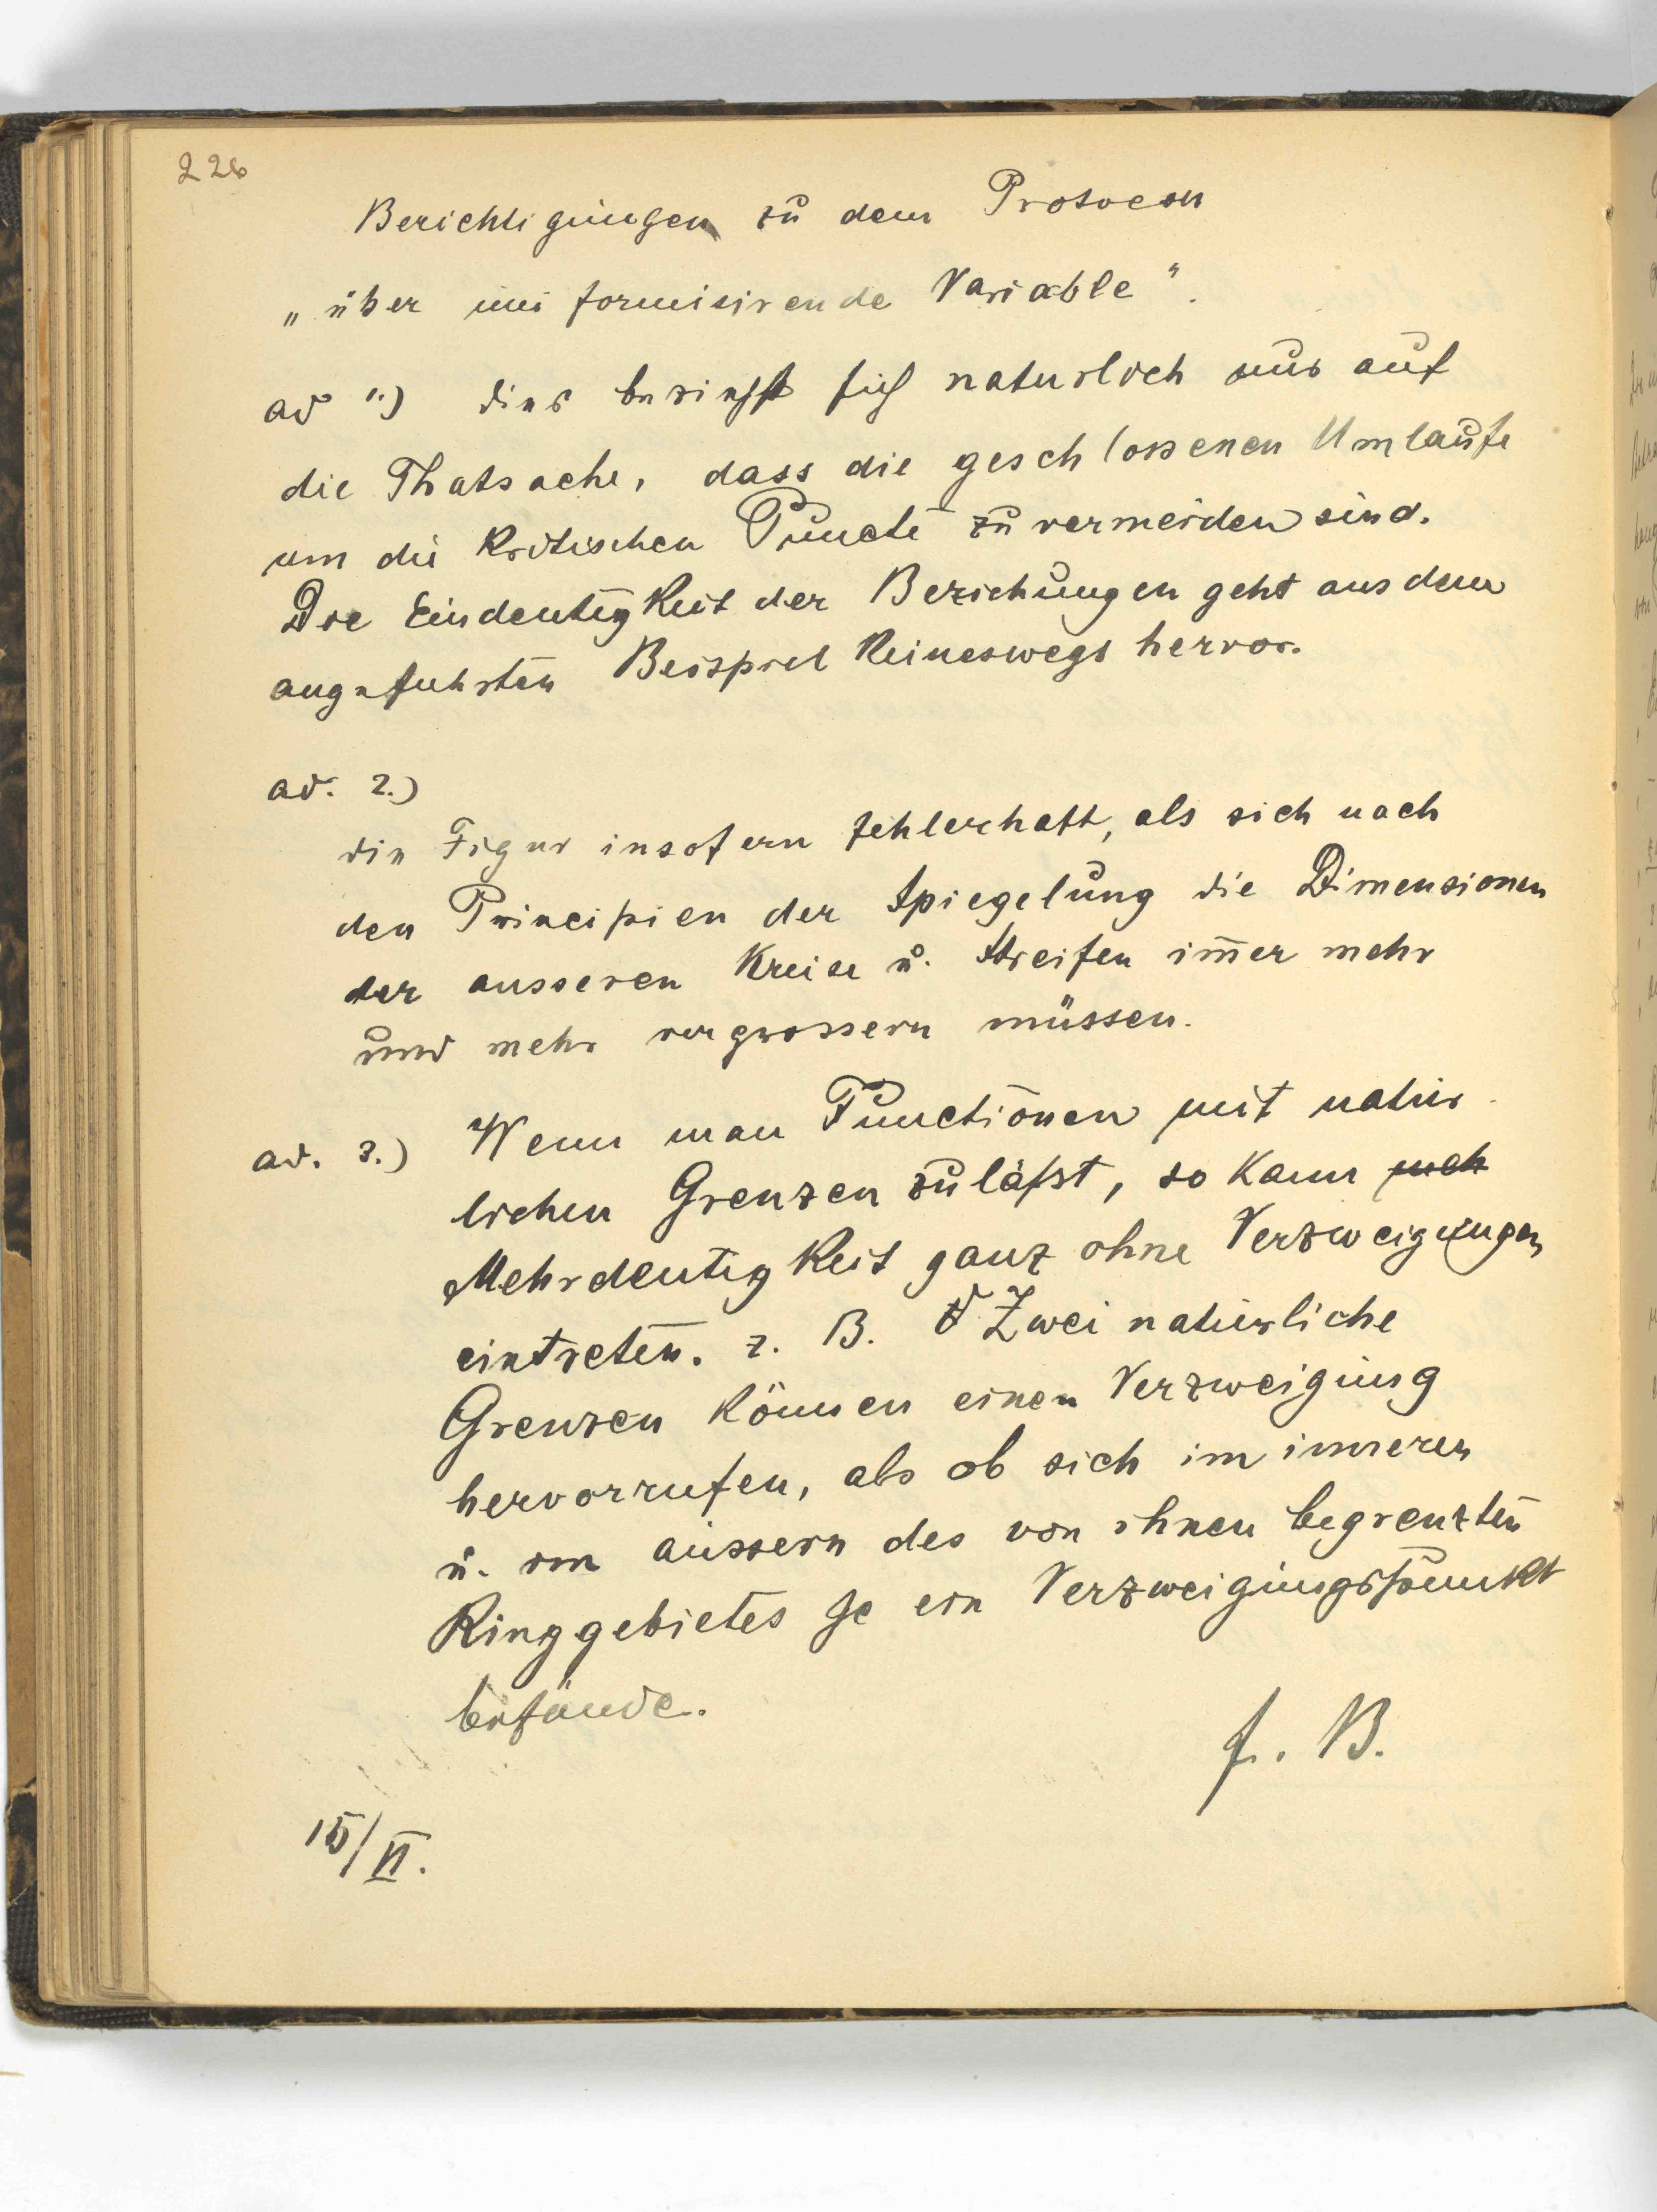 226
Berichtigungen zu dem Protocoll
„über uniformisirende Variable".
ad 1.) dies bezieht sich naturlich nur auf
die Thatsache, dass die geschlossenen Umlaufe
um die kritischen Puncte zu vermeiden sind.
Die Eindeutigkeit der Beziehungen geht aus dem
angefuhrten Beispiel keineswegs hervor.
ad. 2.)
die Figur insofern fehlerhaft, als sich nach
den Principien der Spiegelung die Dimensionen
der ausseren Kreise u. Streifen im̅er mehr
und mehr vergrossern müssen.
ad. 3.) Wenn man Functionen mit natur-
lichen Grenzen zuläßt, so kann
Mehrdeutigkeit ganz ohne Verzweigungen
eintreten. z. B. Zwei naturliche
Grenzen können einen Verzweigung
hervorrufen, als ob sich im inneren
u. im aussern des von ihnen begrenzten
Ringgebietes je ein Verzweigungspunkt
befände.
f. B.
15/VI.